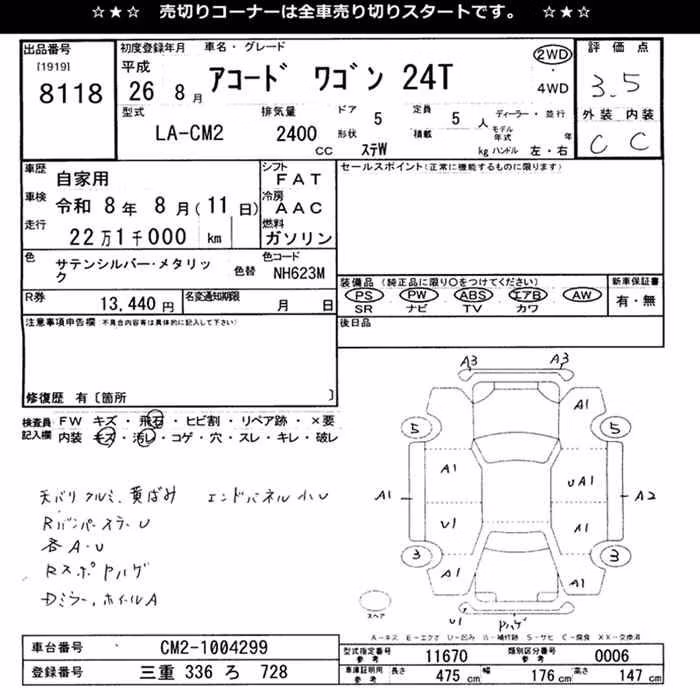 ☆★☆ 売切りコーナーは全車売り切りスタートです。 ☆★☆
出品番号
[1919]
8118
初度登録年月 車名・グレード
平成
26 8月
アコードワゴン 24T
2WD
・
4WD
評価点
3.5
外装 内装
C C
型式
LA-CM2
排気量
2400
CC
ドア
5
形状
ステW
定員
5
人
積載
kg
ディーラー・並行
モデル年式 年
ハンドル 左・右
車歴
自家用
車検
令和 8年 8月(11日)
走行
22万1千000 km
シフト
FAT
冷房
AAC
燃料
ガソリン
セールスポイント(正常に機能するものに限ります)
色
サテンシルバー・メタリック
色替
色コード
NH623M
装備品(純正品に限り○をつけてください)
PS PW ABS エアB AW
SR ナビ TV カワ
新車保証書
有・無
R券
13,440 円
名変通知期限
月 日
後日品
注意事項申告欄 不具合内容等は具体的に記入して下さい)
修復歴 有〔箇所 〕
検査員記入欄
FW キズ・飛石・ヒビ割・リペア跡・×要
内装 キズ・汚レ・コゲ・穴・スレ・キレ・破レ
天バリクルミ、黄ばみ エンドパネル小U
RバンパースラーU
各A・U
RスポPハゲ
Dミラー、ホイールA
A3 A3
A1
5 5
A1 A1 UA1 A2
U1 A1
3 3
A1 A1
U1 Pハゲ
スペア
A-キズ E-エクボ U-凹み W-補修跡 S-サビ C-腐食 XX-交換済
車台番号
CM2-1004299
登録番号
三重 336 ろ 728
型式指定番号
参考
11670
類別区分番号
参考
0006
車庫証明用
参考
長さ 475 cm 幅 176 cm 高さ 147 cm